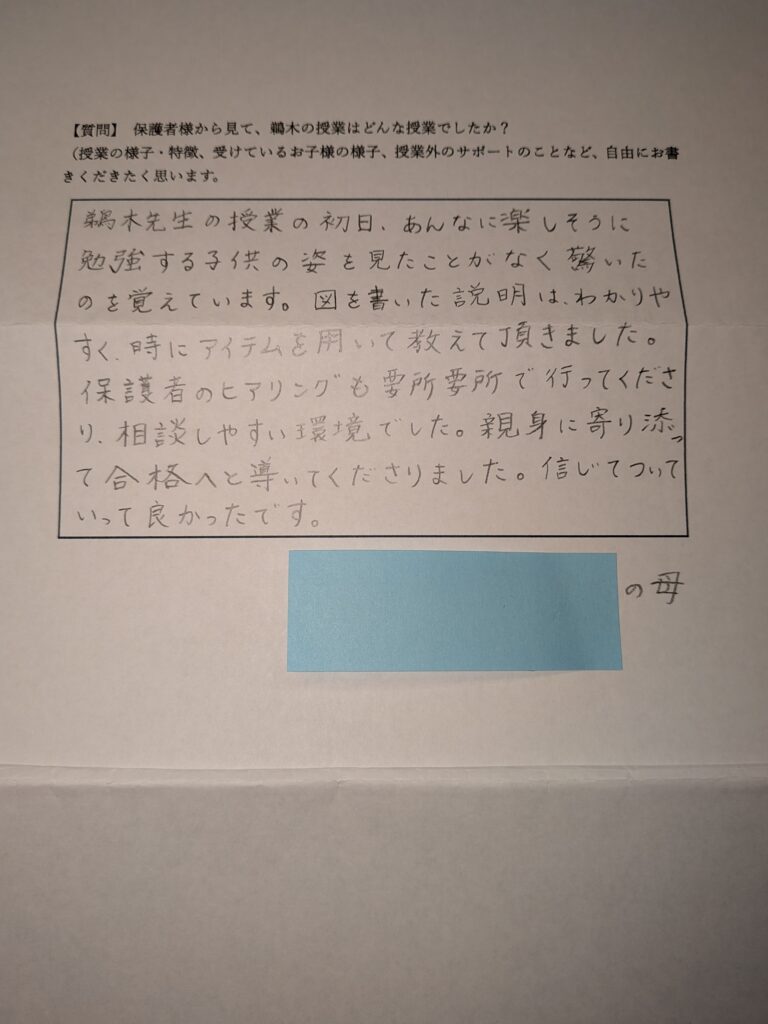 【質問】 保護者様から見て、鵜木の授業はどんな授業でしたか？
（授業の様子・特徴、受けているお子様の様子、授業外のサポートのことなど、自由にお書
きくだきたく思います。
鵜木先生の授業の初日、あんなに楽しそうに
勉強する子供の姿を見たことがなく驚いた
のを覚えています。図を書いた説明は、わかりや
すく、時にアイテムを用いて教えて頂きました。
保護者のヒアリングも要所要所で行ってくださ
り、相談しやすい環境でした。親身に寄り添っ
て合格へと導いてくださりました。信じてついて
いって良かったです。
の母